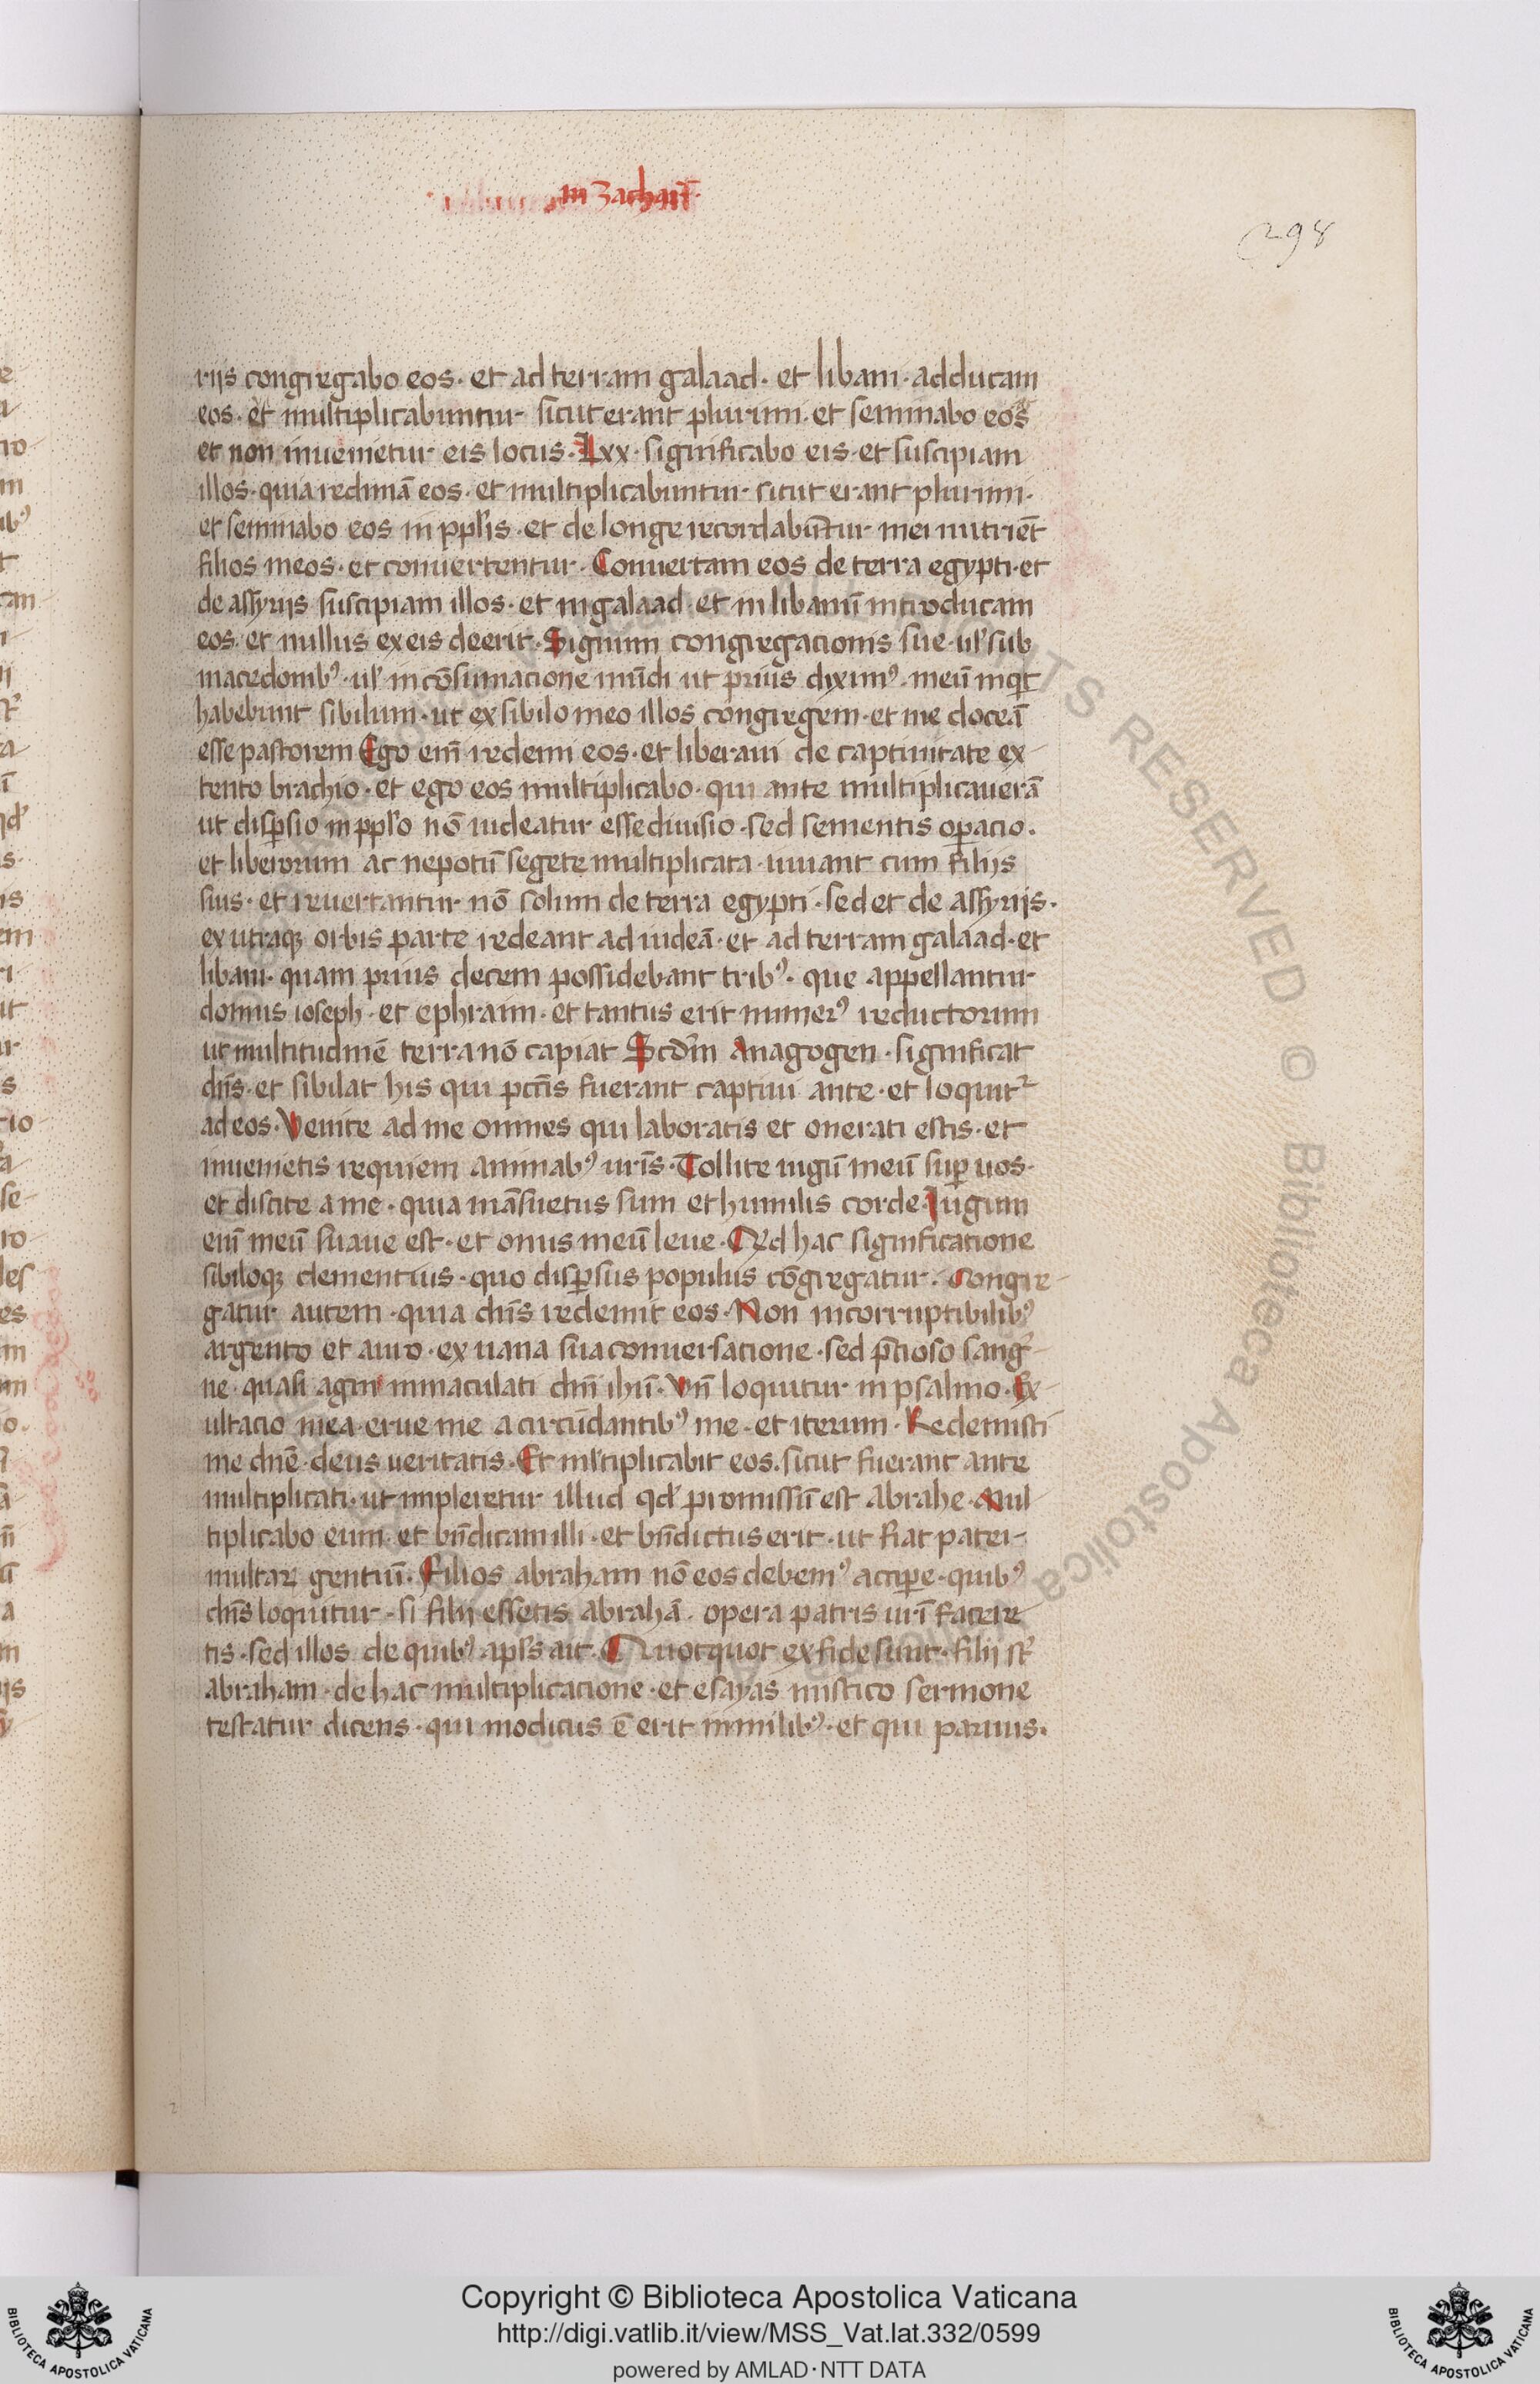 in Zachar̄.
298
riis congregabo eos. et ad terram galaad. et libani. adducam
eos. et multiplicabuntur sicut erant plurimi. et seminabo eos
et non inuenietur eis locus. Lxx. significabo eis. et suscipiam
illos. quia redimā eos. et multiplicabuntur sicut erant plurimi.
et seminabo eos in ppl̄is. et de longe recordabūtur mei nutriēt
filios meos. et conuertentur. Conuertam eos de terra egypti. et
de assyriis suscipiam illos. et in galaad. et in libanū introducam
eos. et nullus ex eis deerit. Signum congregacionis sue. ul̄ sub
macedonibꝰ. ul̄ in cōsumacione mūdi ut prius diximꝰ. meū inqͥt
habebunt sibilum. ut ex sibilo meo illos congregem. et me doceā
esse pastorem Ego eni᷑ redemi eos. et liberaui de captiuitate ex-
tento brachio. et ego eos multiplicabo. qui ante multiplicauerā
ut disꝑsio in ppl̄o nō uideatur esse diuisio. sed sementis oꝑacio.
et liberorum ac nepotū segete multiplicata. uiuant cum filiis
suis. et reuertantur nō solum de terra egypti. sed et de assyriis.
ex utraqꝫ orbis parte redeant ad iudeā. et ad terram galaad. et
libani. quam prius decem possidebant tribꝰ. que appellantur
domus ioseph. et ephraim. et tantus erit numerꝰ reductorum
ut multitudinē terra nō capiat Scd̄m Anagogen. significat
dn̄s. et sibilat his qui pctīs fuerant captiui ante. et loquit᷑
ad eos. Venite ad me omnes qui laboratis et onerati estis. et
inuenietis requiem animabꝰ ur̄is. Tollite iugū meū suꝑ uos.
et discite a me. quia māsuetus sum et humilis corde. Iugum
enī meū suaue est. et onus meū leue. Ad hac significatione
sibiloqꝫ clementius. quo disꝑsus populus cōgregatur. Congre-
gatur autem. quia dn̄s redemit eos. Non incorruptibilibꝰ
argento et auro. ex uana sua conuersatione. sed p̄cioso sangͥ-
ne. quasi agni inmaculati dn̄i ihū. Vn̄ loquitur in psalmo. Ex-
ultacio mea. erue me a circūdantibꝰ me. et iterum. Redemisti
me dn̄e. deus ueritatis. Et ml̄tiplicabit eos. sicut fuerant ante
multiplicati. ut impleretur illud qd̄ promissū est abrahe. Mul-
tiplicabo eum. et bn̄dicam illi. et bn̄dictus erit. ut fiat pater
multaꝝ gentiū. Filios abraham nō eos debemꝰ acciꝑe. quibꝰ
dn̄s loquitur. si filii essetis abrahā. opera patris ur̄i facere-
tis. sed illos de quibꝰ apl̄s ait. Quotquot ex fide sunt. filii st̄
abraham. de hac multiplicacione. et esayas mistico sermone
testatur dicens. qui modicus ē erit in milibꝰ. et qui paruus.
RIGHTS RESERVED © Biblioteca Apostolica
Copyright © Biblioteca Apostolica Vaticana
http://digi.vatlib.it/view/MSS_Vat.lat.332/0599
powered by AMLAD·NTT DATA
BIBLIOTECA APOSTOLICA VATICANA
BIBLIOTECA APOSTOLICA VATICANA